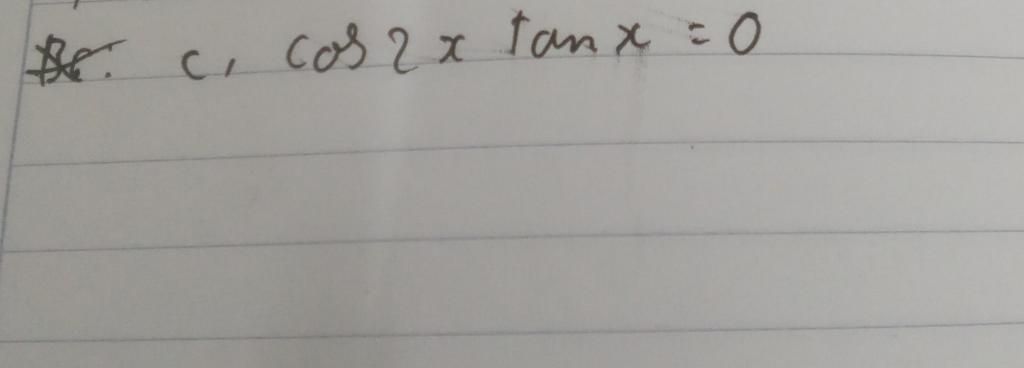 c, cos2x tanx = 0